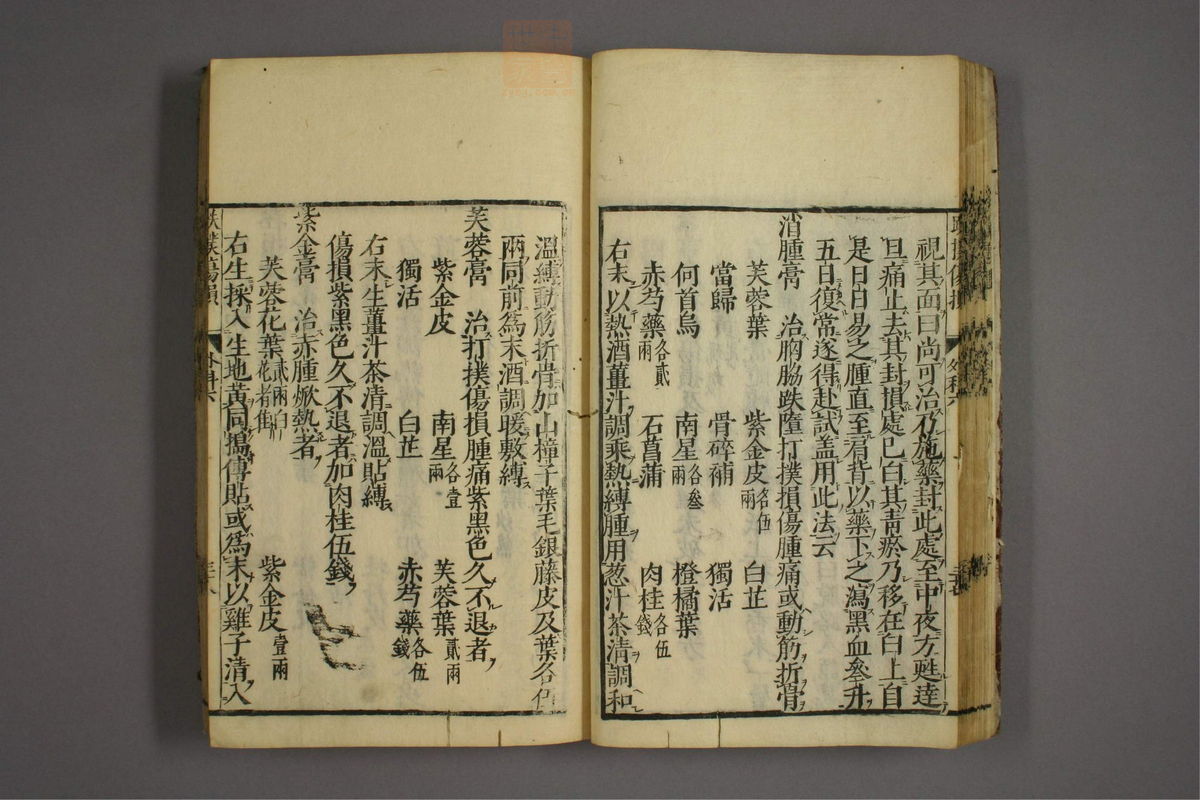 視其面曰尚可治乃施藥封此處至中夜方甦達
旦痛止去其封損處已白其青瘀乃移在白上自
是日日易之腫直至肩背以藥下之瀉黑血叄升
五日復常遂得赴試盖用此法云
消腫膏 治胸脇跌墮打撲損傷腫痛或動筋折骨
芙蓉葉 紫金皮各伍兩 白芷
當歸 骨碎補 獨活
何首烏 南星各叄兩 橙橘葉
赤芍藥各貳兩 石菖蒲 肉桂各伍錢
右末以熱酒薑汁調乘熱縛腫用葱汁茶清調和
溫縛動筋折骨加山樟子葉毛銀藤皮及葉各伍
兩同前為末酒調暖敷縛
芙蓉膏 治打撲傷損腫痛紫黑色久不退者
紫金皮 南星各壹兩 芙蓉葉貳兩
獨活 白芷 赤芍藥各伍錢
右末生薑汁茶清調溫貼縛
傷損紫黑色久不退者加肉桂伍錢
紫金膏 治赤腫焮熱者
芙蓉花葉貳兩白花者佳 紫金皮壹兩
右生採入生地黃同搗傅貼或為末以雞子清入